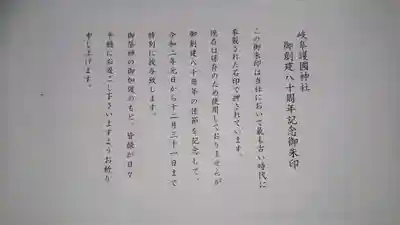 岐阜護國神社
御創建八十周年記念御朱印
この御朱印は当社において最も古い時代に
奉製された石印で押されています。
現在は保存のため使用しておりませんが
御創建八十周年の佳節を記念して、
令和二年元日から十二月三十一日まで
特別に授与致します。
御祭神の御加護のもと、皆様が日々
平穏にお過ごし下さいますようお祈り
申し上げます。